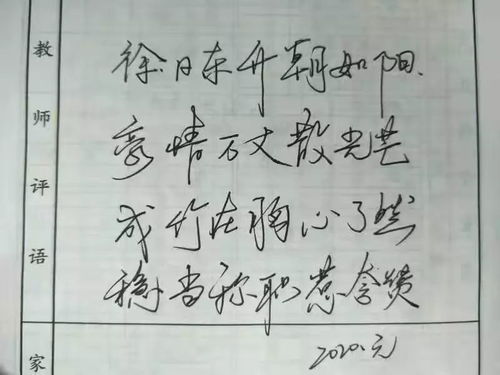 教师评语
徐日东升朝如阳.
豪情万丈散光芒
成竹在胸心了然
稳当称职惹夸赞
2020.元
家